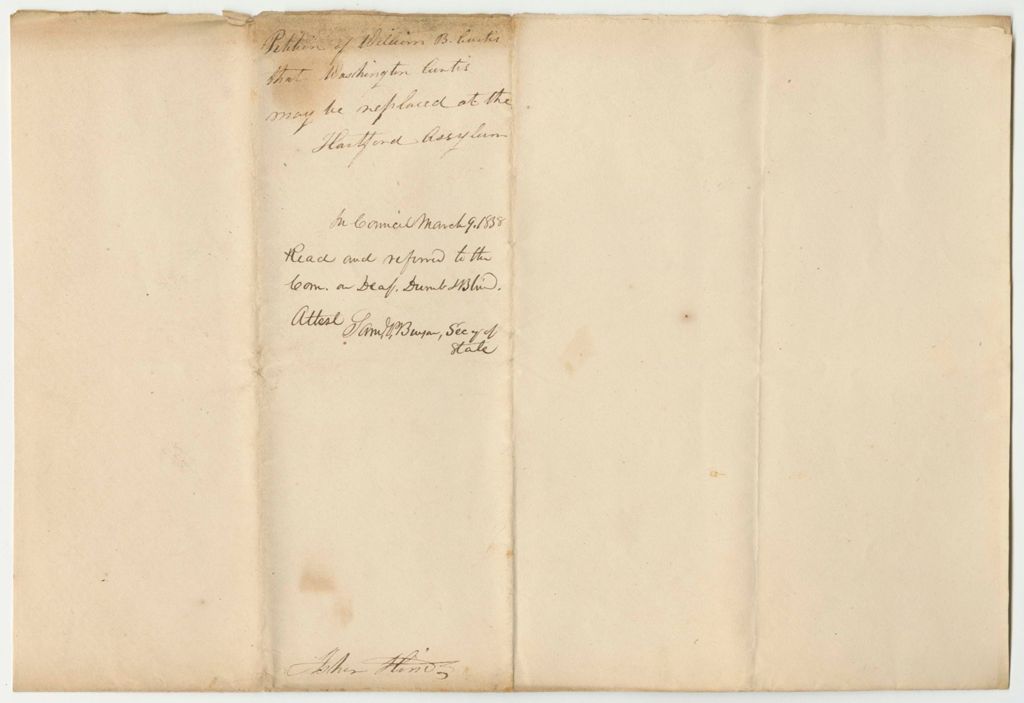 Petition of William B. Curtis
that Washington Curtis
may be replaced at the
Hartford Assylum
In Council March 9. 1838
Read and referred to the
Com. on Deaf, Dumb & Blind.
Attest
Sec'y of
State